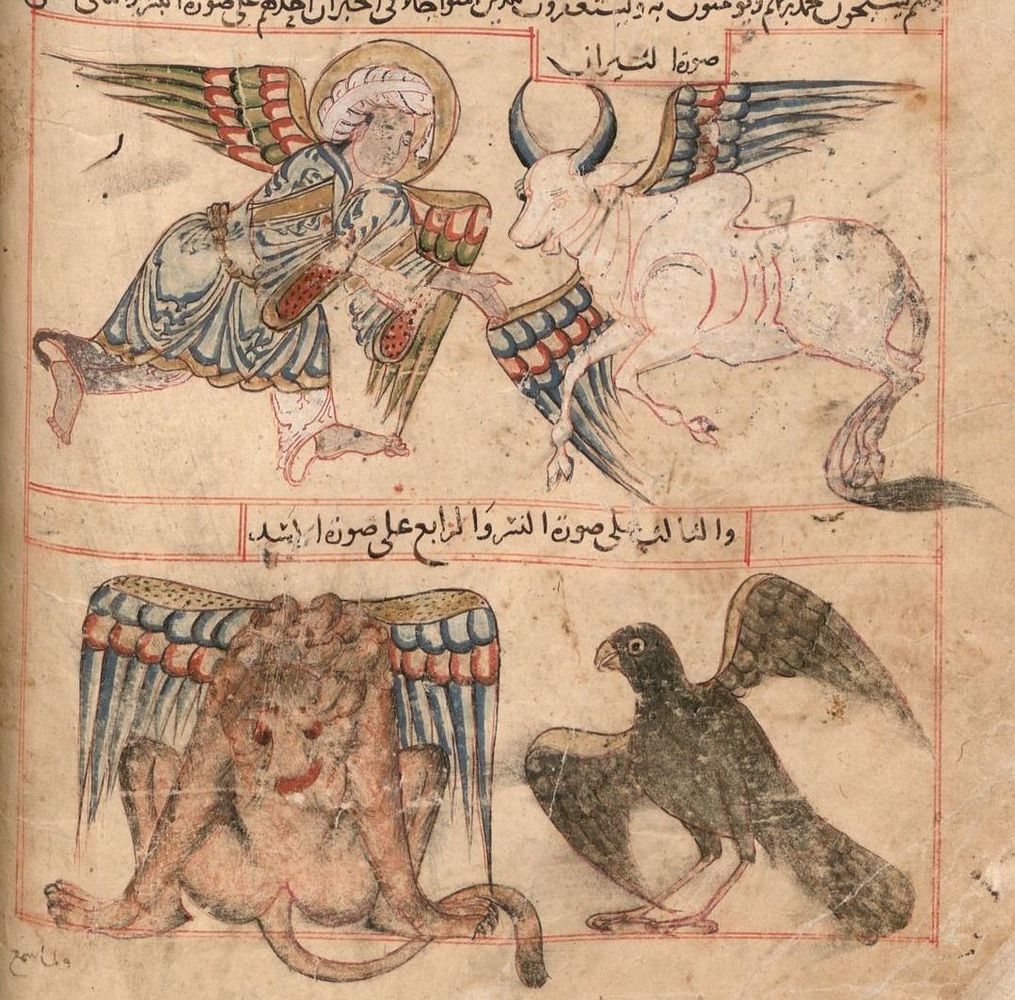 يسبحون بحمد ربهم ويومنون به ويستغفرون للذين امنوا جاء في اخبران احدهم على صورة البشر
صورة الثيران
والثالث على صورة النسر والرابع على صورة الاسد